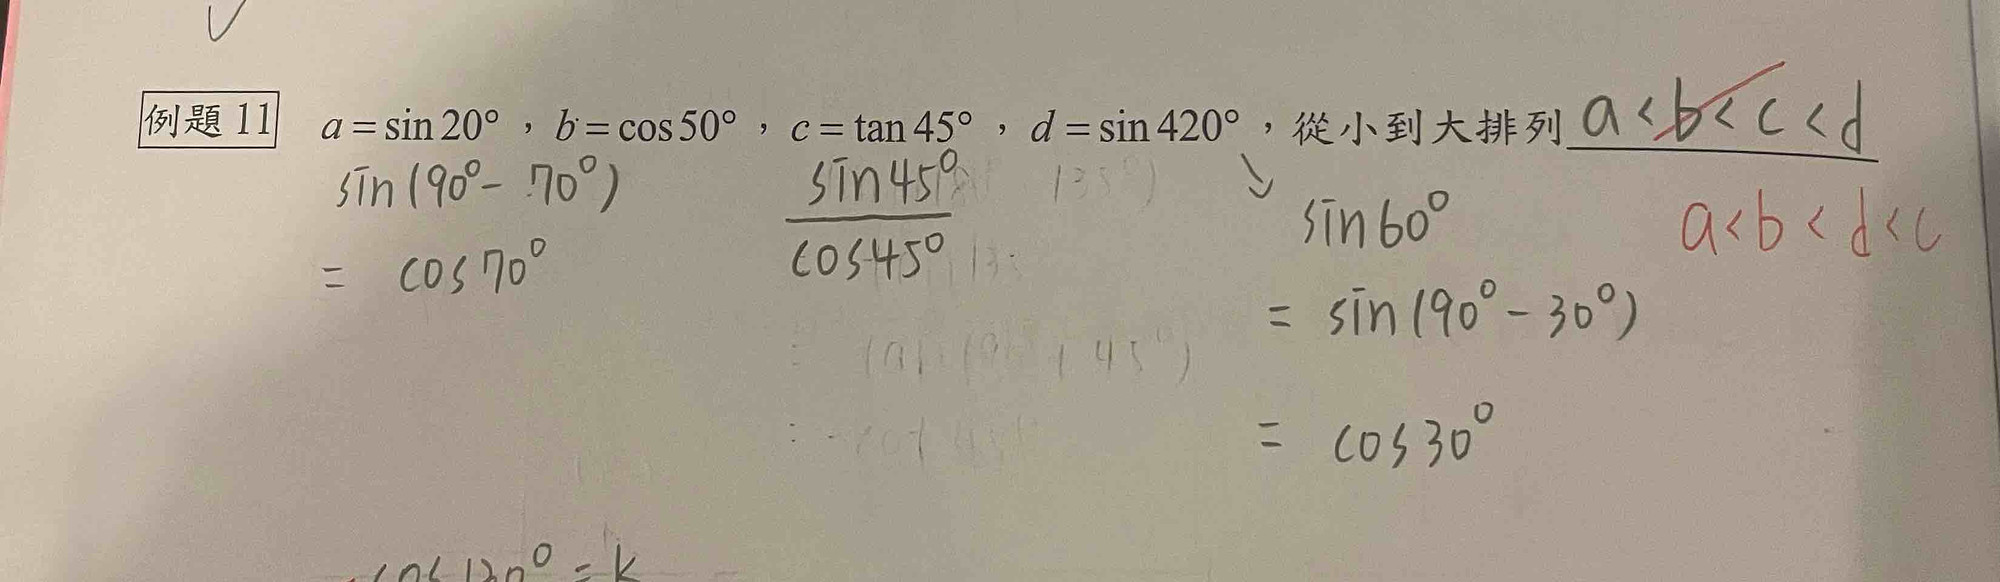 例題 11 a = sin 20°，b = cos 50°，c = tan 45°，d = sin 420°，從小到大排列 a < b < c < d
sin(90° - 70°)
= cos70°
sin45°
cos45°
sin60°
= sin(90° - 30°)
= cos30°
a < b < d < c
= k